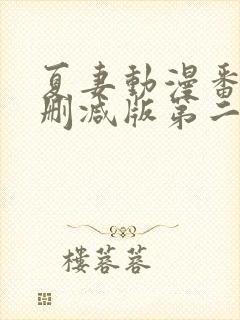 夏妻動漫番
刪減版第二
樓蓉蓉